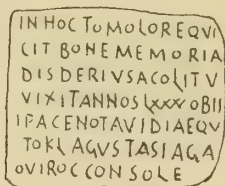 INHOCTOMOLOREQVI
CITBONEMEMORIA
DISDERIVSACOLITV
VIXITANNOSLXXXVOBII
IPACENOTAVIDIAEQV
TOKLAGVSTASIAGA
OVIROCCONSOLE